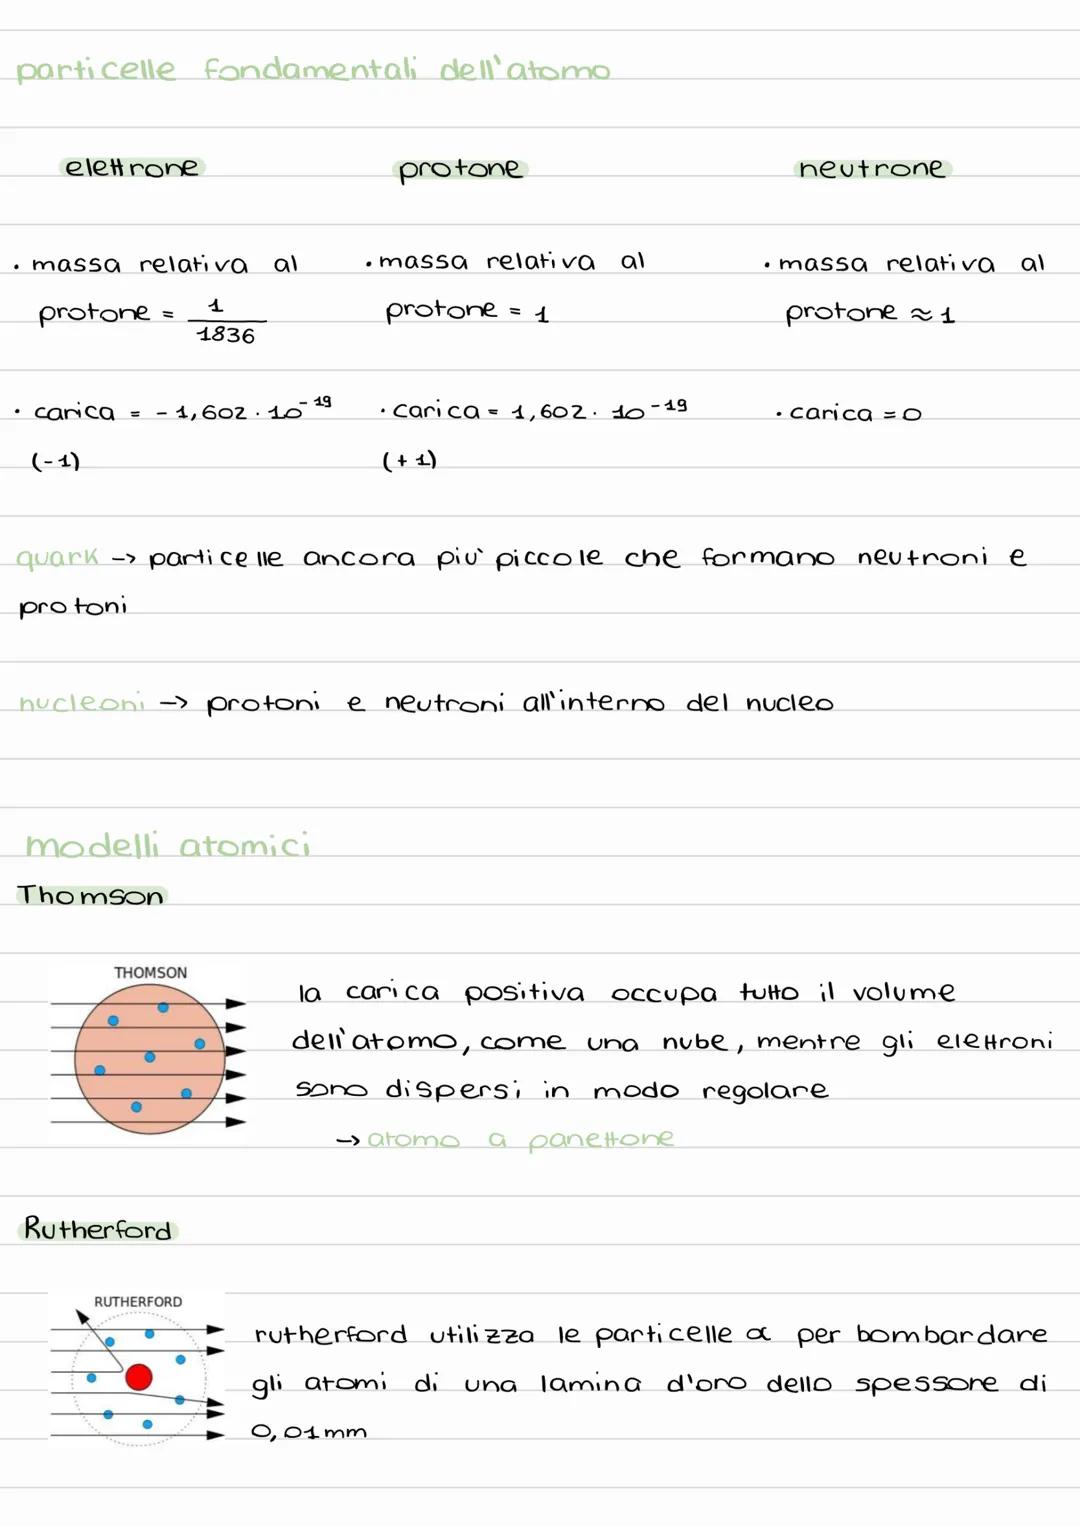 particelle fondamentali dell'atomo
elettrone protone neutrone
• massa relativa al • massa relativa al • massa relativa al
protone = 1/1836 protone = 1 protone ≈ 1
• carica = - 1,602 · 10⁻¹⁹ • carica = 1,602 · 10⁻¹⁹ • carica = 0
(-1) (+1)
quark -> particelle ancora più piccole che formano neutroni e
protoni
nucleoni -> protoni e neutroni all'interno del nucleo
modelli atomici
Thomson
THOMSON
la carica positiva occupa tutto il volume
dell'atomo, come una nube, mentre gli elettroni
sono dispersi in modo regolare
-> atomo a panettone
Rutherford
RUTHERFORD
rutherford utilizza le particelle α per bombardare
gli atomi di una lamina d'oro dello spessore di
0,01 mm